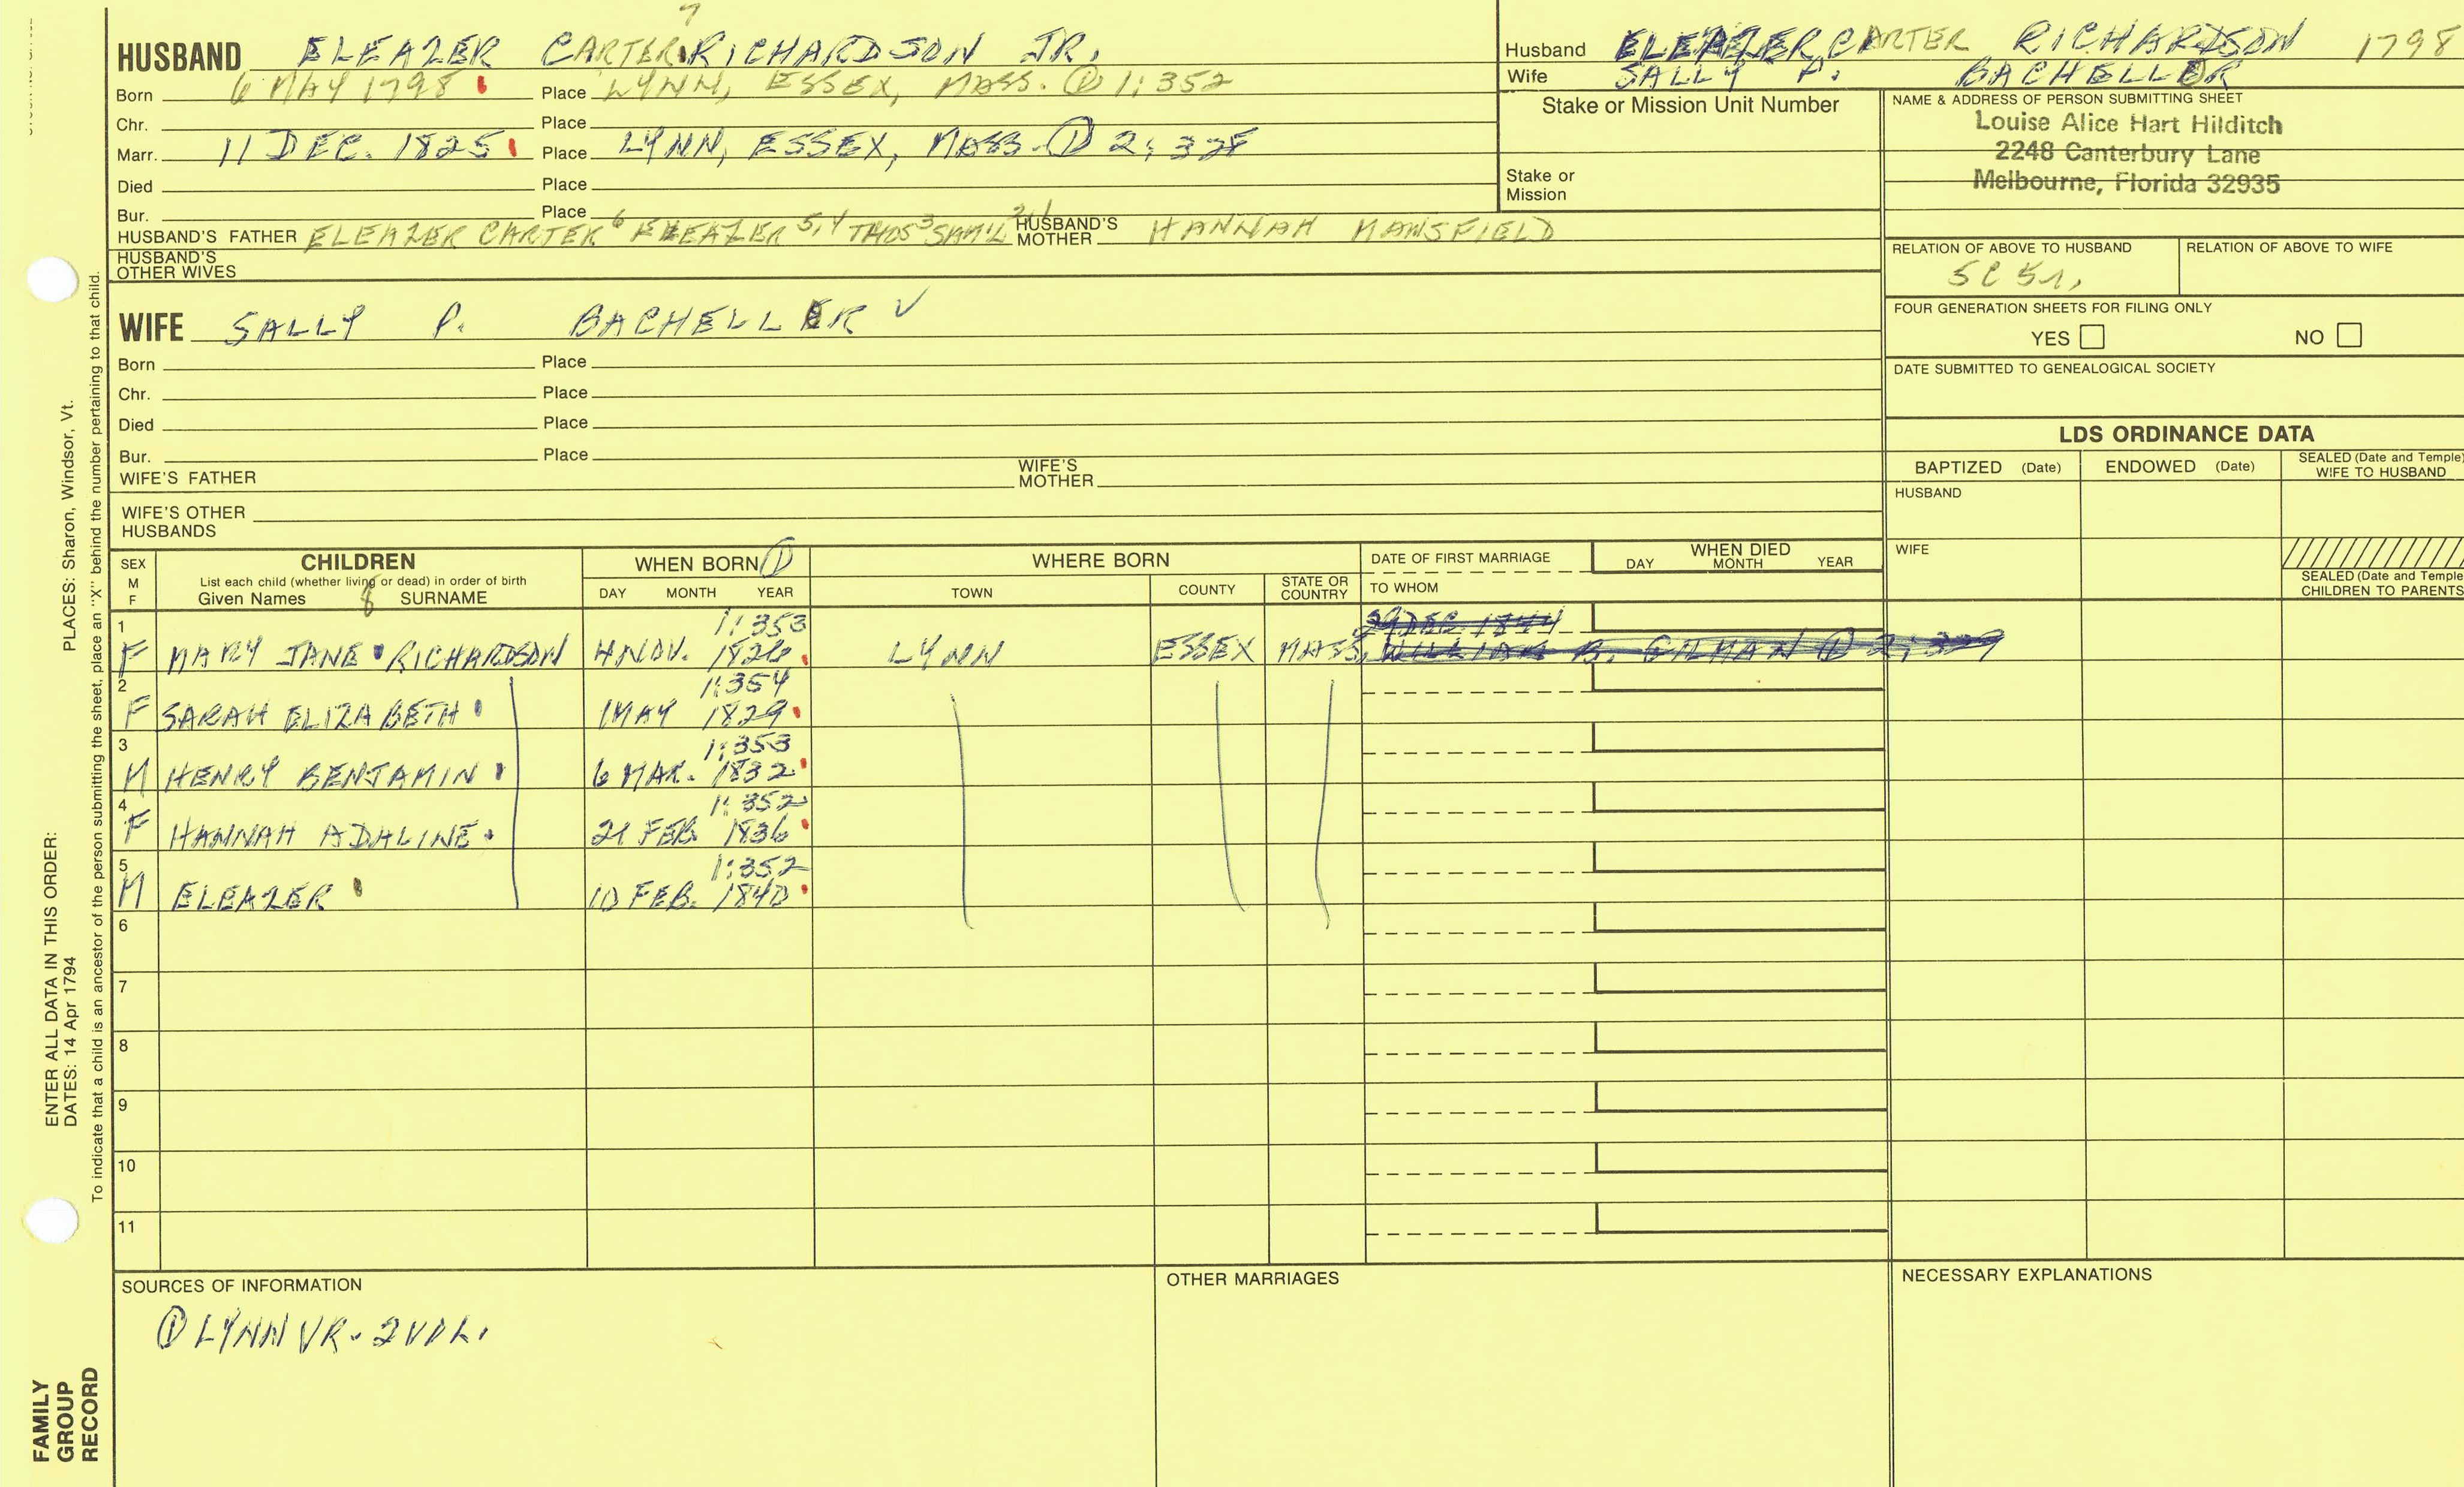 7
HUSBAND ELEAZER CARTER RICHARDSON JR.
Born 6 MAY 1798 Place LYNN, ESSEX, MASS. ① 1:352
Chr. Place
Marr. 11 DEC. 1825 Place LYNN, ESSEX, MASS. ① 2:328
Died Place
Bur. Place
HUSBAND'S FATHER ELEAZER CARTER 6 ELEAZER 5,4 THOS 3 SAM'L 2,1 HUSBAND'S MOTHER HANNAH MANSFIELD
HUSBAND'S OTHER WIVES
Husband ELEAZER CARTER RICHARDSON 1798
Wife SALLY P. BACHELLER
Stake or Mission Unit Number
Stake or Mission
NAME & ADDRESS OF PERSON SUBMITTING SHEET
Louise Alice Hart Hilditch
2248 Canterbury Lane
Melbourne, Florida 32935
RELATION OF ABOVE TO HUSBAND RELATION OF ABOVE TO WIFE
5C 5r,
FOUR GENERATION SHEETS FOR FILING ONLY
YES NO
DATE SUBMITTED TO GENEALOGICAL SOCIETY
WIFE SALLY P. BACHELLER ✓
Born Place
Chr. Place
Died Place
Bur. Place
WIFE'S FATHER WIFE'S MOTHER
WIFE'S OTHER HUSBANDS
LDS ORDINANCE DATA
BAPTIZED (Date) ENDOWED (Date) SEALED (Date and Temple) WIFE TO HUSBAND
HUSBAND
WIFE
SEALED (Date and Temple) CHILDREN TO PARENTS
SEX M F CHILDREN WHEN BORN ① WHERE BORN DATE OF FIRST MARRIAGE WHEN DIED
List each child (whether living or dead) in order of birth DAY MONTH YEAR
Given Names 8 SURNAME DAY MONTH YEAR TOWN COUNTY STATE OR COUNTRY TO WHOM
1 1:353 29 DEC. 1844
F MARY JANE RICHARDSON 4 NOV. 1826 LYNN ESSEX MASS. WILLIAM B. GILMAN ① 2:329
2 1:354
F SARAH ELIZABETH 1 MAY 1829
3 1:353
M HENRY BENJAMIN 6 MAR. 1832
4 1:352
F HANNAH ADALINE 21 FEB. 1836
5 1:352
M ELEAZER 10 FEB. 1840
6
7
8
9
10
11
SOURCES OF INFORMATION OTHER MARRIAGES NECESSARY EXPLANATIONS
① LYNN VR. 2 VOL.
ENTER ALL DATA IN THIS ORDER:
DATES: 14 Apr 1794 PLACES: Sharon, Windsor, Vt.
To indicate that a child is an ancestor of the person submitting the sheet, place an "X" behind the number pertaining to that child.
FAMILY
GROUP
RECORD